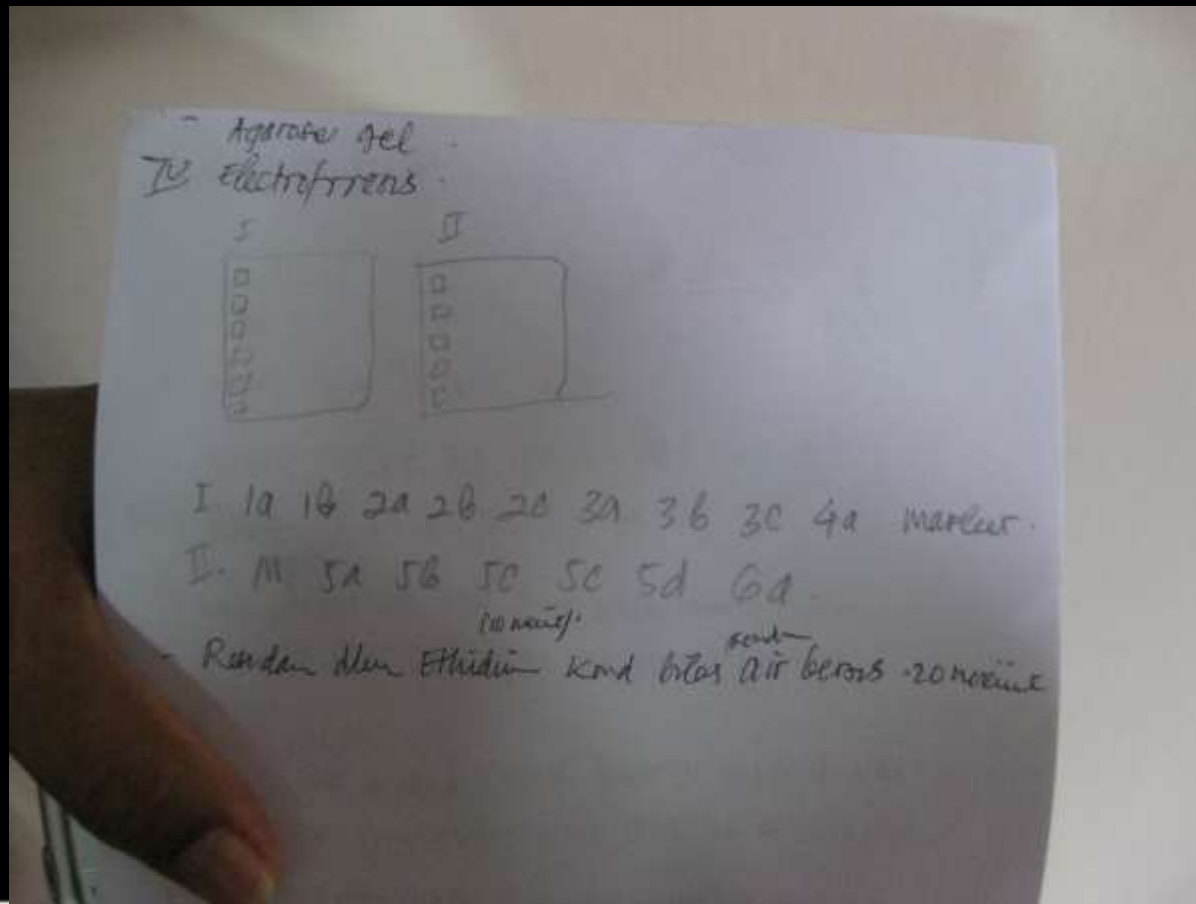 - Agarose gel.
IV Electroforens.
I II
I. 1a 1b 2a 2b 2c 3a 3b 3c 4a marker.
II. M 5a 5b 5c 5c 5d 6a.
(10 menit).
- Rendam dlm Ethidium kmd bilas air beras 20 menit